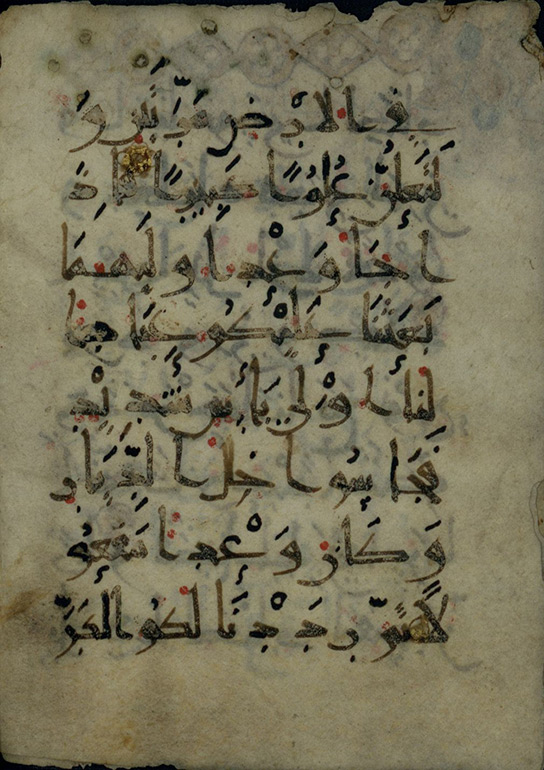 فِي الْأَرْضِ مَرَّتَيْنِ وَ
لَتَعْلُنَّ عُلُوًّا كَبِيرًا فَإِذَ
ا جَاءَ وَعْدُ أُولَىٰهُمَا
بَعَثْنَا عَلَيْكُمْ عِبَادًا
لَنَا أُولِي بَأْسٍ شَدِيدٍ
فَجَاسُوا خِلَٰلَ الدِّيَارِ
وَكَانَ وَعْدًا مَفْعُو
لًا ثُمَّ رَدَدْنَا لَكُمُ الْكَرَّ